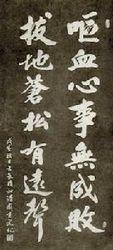 嘔血心事無成敗
拔地蒼松有遠聲